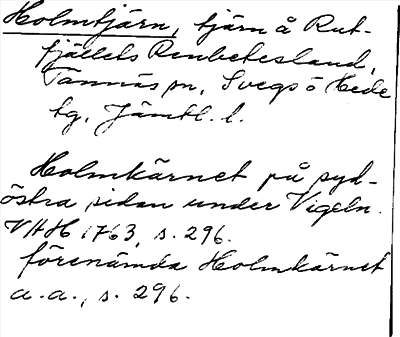 Holmtjärn, tjärn å Rut-
fjällets Renbetesland,
Tännäs sn, Svegs o Hede
tg, Jämtl. l.
Holmkärnet på syd-
östra sidan under Vigeln.
VHH 1763, s. 296.
förenämda Holmkärnet
a. a., s. 296.